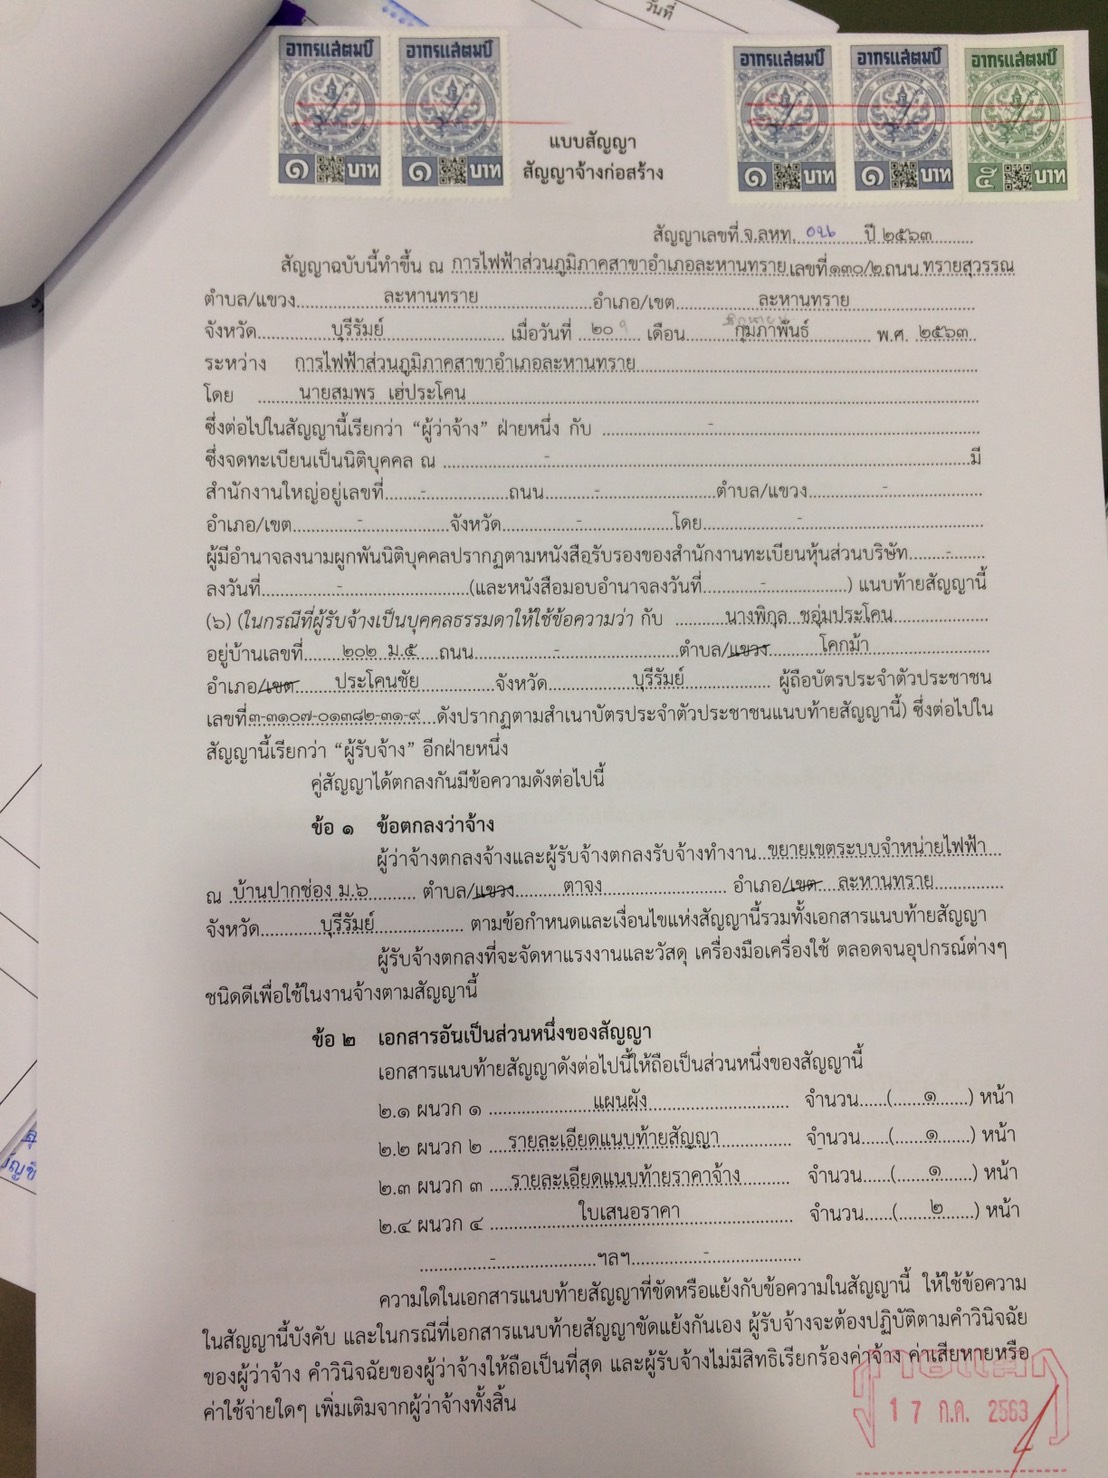 วันที่
อากรแสตมป์ อากรแสตมป์ อากรแสตมป์ อากรแสตมป์ อากรแสตมป์
๑ บาท ๑ บาท ๑ บาท ๑ บาท ๕ บาท
แบบสัญญา
สัญญาจ้างก่อสร้าง
สัญญาเลขที่ จ.ลหท. ๐๒๖ ปี ๒๕๖๓
สัญญาฉบับนี้ทำขึ้น ณ การไฟฟ้าส่วนภูมิภาคสาขาอำเภอละหานทราย เลขที่๑๓๐/๒ ถนน ทรายสุวรรณ
ตำบล/แขวง ละหานทราย อำเภอ/เขต ละหานทราย
จังหวัด บุรีรัมย์ เมื่อวันที่ ๒๐ เดือน กุมภาพันธ์ พ.ศ. ๒๕๖๓
ระหว่าง การไฟฟ้าส่วนภูมิภาคสาขาอำเภอละหานทราย
โดย นายสมพร เฮ่ประโคน
ซึ่งต่อไปในสัญญานี้เรียกว่า “ผู้ว่าจ้าง” ฝ่ายหนึ่ง กับ -
ซึ่งจดทะเบียนเป็นนิติบุคคล ณ - มี
สำนักงานใหญ่อยู่เลขที่ - ถนน - ตำบล/แขวง -
อำเภอ/เขต - จังหวัด - โดย -
ผู้มีอำนาจลงนามผูกพันนิติบุคคลปรากฏตามหนังสือรับรองของสำนักงานทะเบียนหุ้นส่วนบริษัท -
ลงวันที่ - (และหนังสือมอบอำนาจลงวันที่ - ) แนบท้ายสัญญานี้
(๖) (ในกรณีที่ผู้รับจ้างเป็นบุคคลธรรมดาให้ใช้ข้อความว่า กับ นางพิกุล ชอุ่มประโคน
อยู่บ้านเลขที่ ๒๐๒ ม.๕ ถนน - ตำบล/แขวง โคกม้า
อำเภอ/เขต ประโคนชัย จังหวัด บุรีรัมย์ ผู้ถือบัตรประจำตัวประชาชน
เลขที่๓-๓๑๐๗-๐๑๓๘๒-๓๑-๙ ดังปรากฏตามสำเนาบัตรประจำตัวประชาชนแนบท้ายสัญญานี้) ซึ่งต่อไปใน
สัญญานี้เรียกว่า “ผู้รับจ้าง” อีกฝ่ายหนึ่ง
คู่สัญญาได้ตกลงกันมีข้อความดังต่อไปนี้
ข้อ ๑ ข้อตกลงว่าจ้าง
ผู้ว่าจ้างตกลงจ้างและผู้รับจ้างตกลงรับจ้างทำงาน ขยายเขตระบบจำหน่ายไฟฟ้า
ณ บ้านปากช่อง ม.๖ ตำบล/แขวง ตาจง อำเภอ/เขต ละหานทราย
จังหวัด บุรีรัมย์ ตามข้อกำหนดและเงื่อนไขแห่งสัญญานี้รวมทั้งเอกสารแนบท้ายสัญญา
ผู้รับจ้างตกลงที่จะจัดหาแรงงานและวัสดุ เครื่องมือเครื่องใช้ ตลอดจนอุปกรณ์ต่างๆ
ชนิดดีเพื่อใช้ในงานจ้างตามสัญญานี้
ข้อ ๒ เอกสารอันเป็นส่วนหนึ่งของสัญญา
เอกสารแนบท้ายสัญญาดังต่อไปนี้ให้ถือเป็นส่วนหนึ่งของสัญญานี้
๒.๑ ผนวก ๑ แผนผัง จำนวน (๑) หน้า
๒.๒ ผนวก ๒ รายละเอียดแนบท้ายสัญญา จำนวน (๑) หน้า
๒.๓ ผนวก ๓ รายละเอียดแนบท้ายราคาจ้าง จำนวน (๑) หน้า
๒.๔ ผนวก ๔ ใบเสนอราคา จำนวน (๒) หน้า
- ฯลฯ -
ความใดในเอกสารแนบท้ายสัญญาที่ขัดหรือแย้งกับข้อความในสัญญานี้ ให้ใช้ข้อความ
ในสัญญานี้บังคับ และในกรณีที่เอกสารแนบท้ายสัญญาขัดแย้งกันเอง ผู้รับจ้างจะต้องปฏิบัติตามคำวินิจฉัย
ของผู้ว่าจ้าง คำวินิจฉัยของผู้ว่าจ้างให้ถือเป็นที่สุด และผู้รับจ้างไม่มีสิทธิเรียกร้องค่าจ้าง ค่าเสียหายหรือ
ค่าใช้จ่ายใดๆ เพิ่มเติมจากผู้ว่าจ้างทั้งสิ้น
จ่ายแล้ว
17 ก.ค. 2563